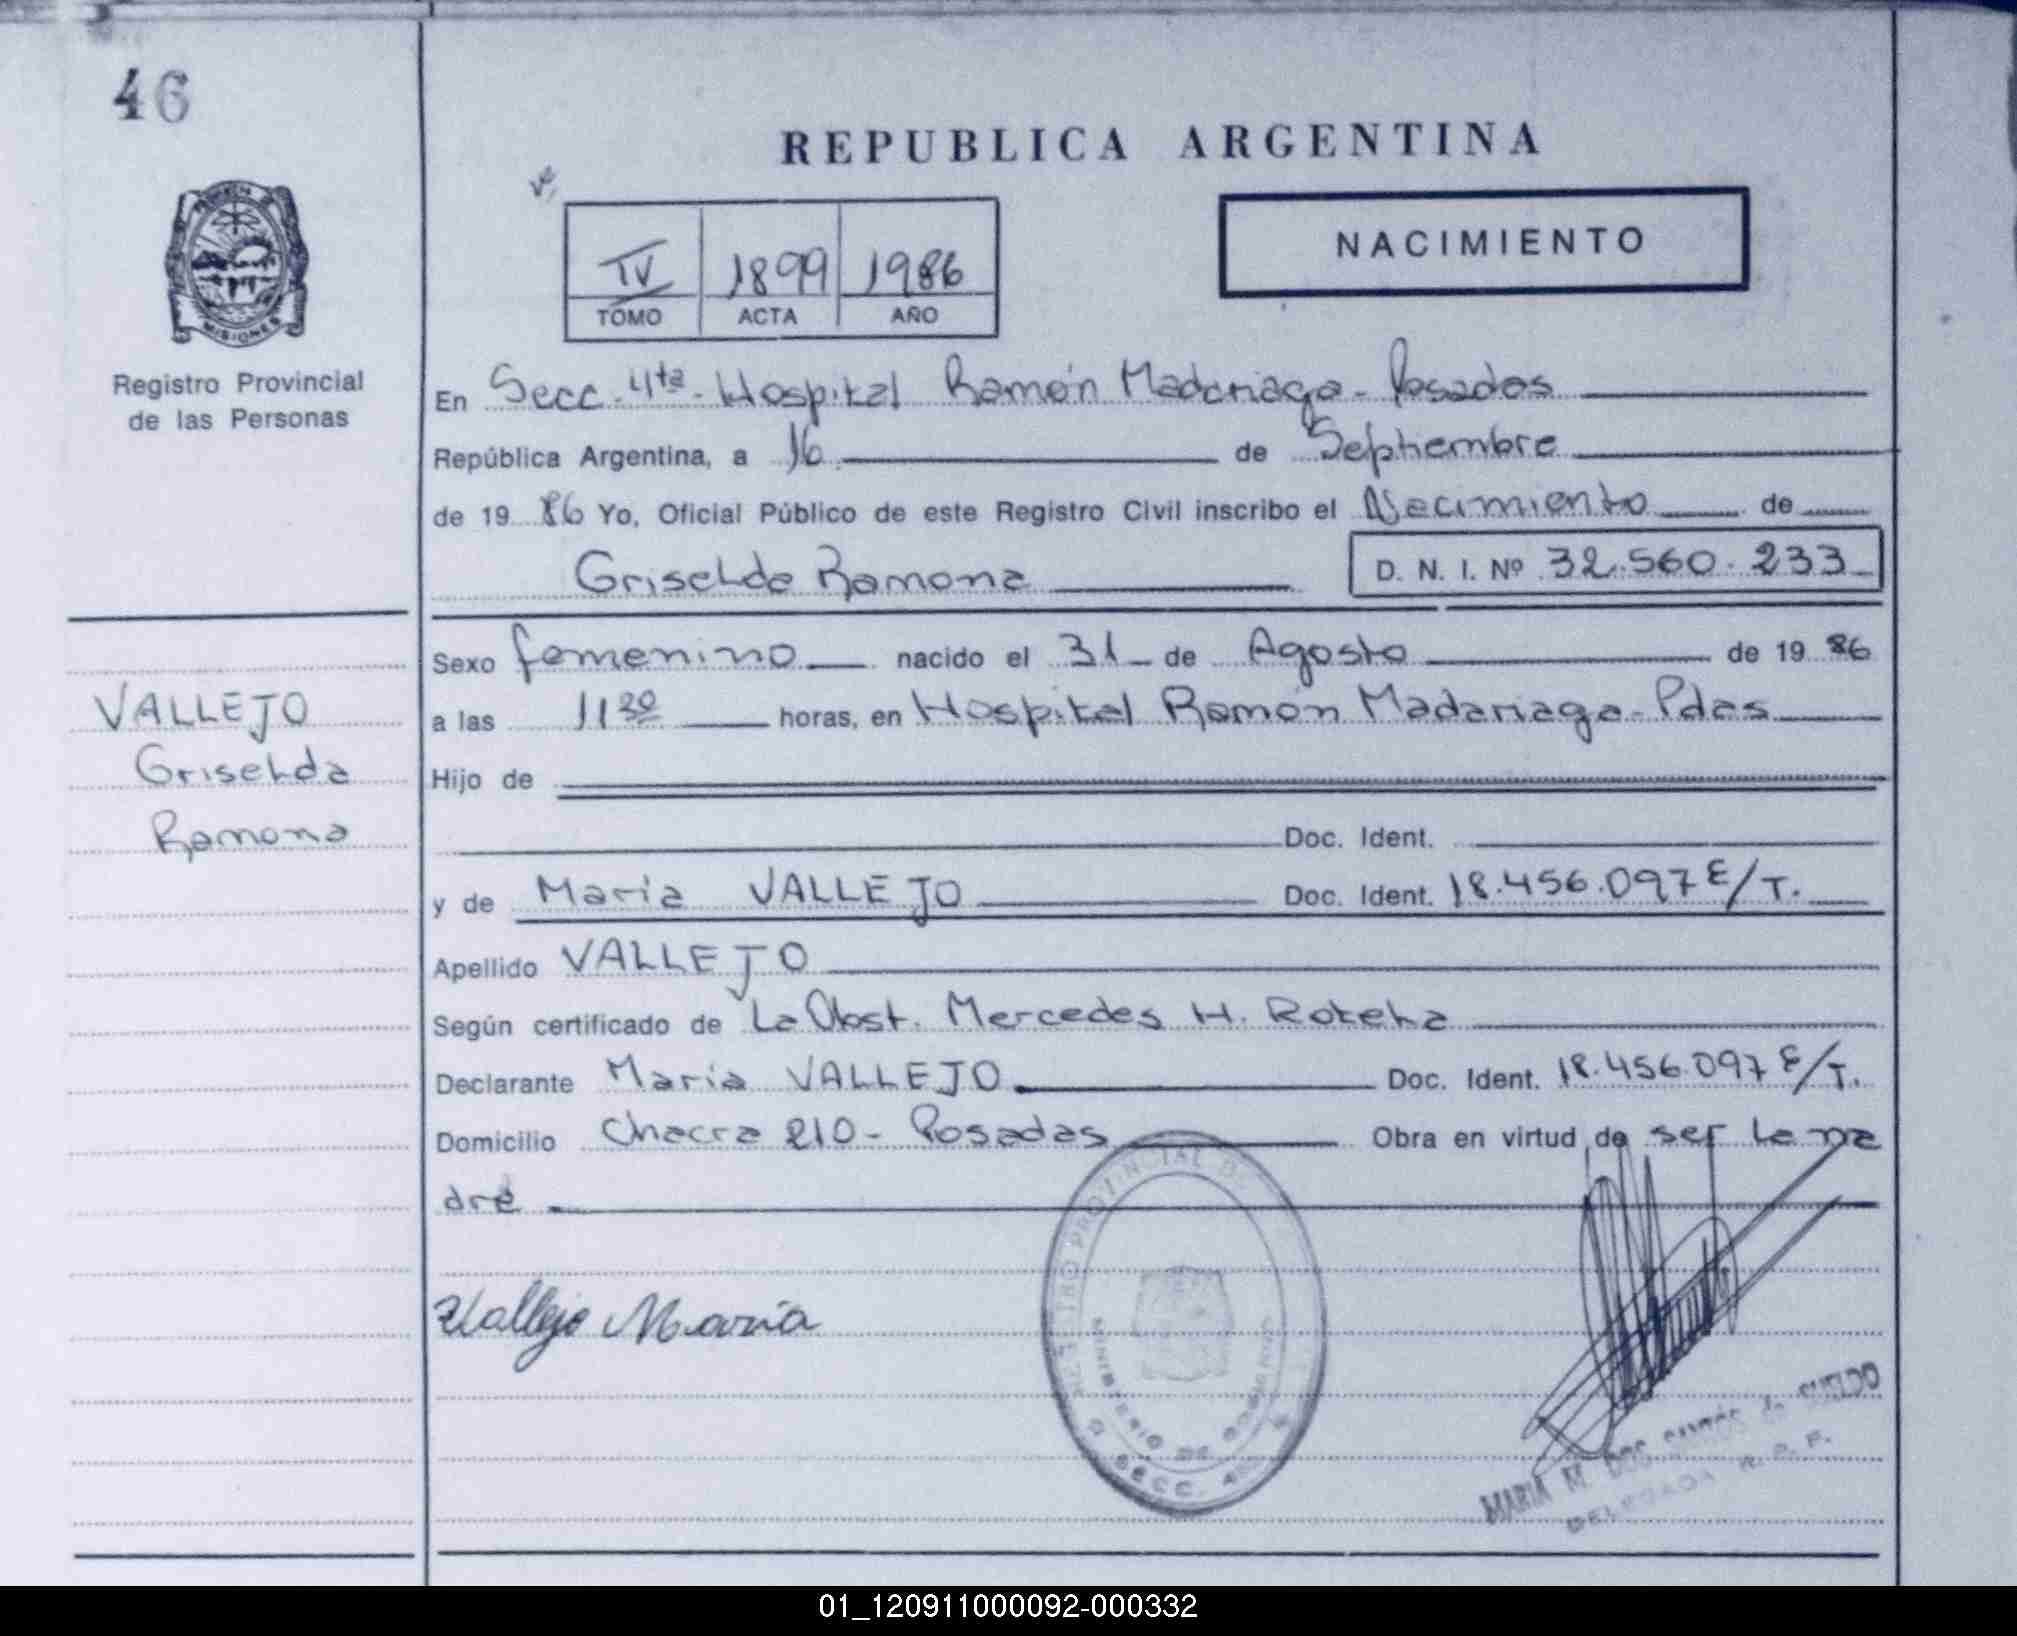 46
REPUBLICA ARGENTINA
NACIMIENTO
IV 1899 1986
TOMO ACTA AÑO
MISIONES
Registro Provincial
de las Personas
En Secc. 4ta - Hospital Ramón Madariaga - Posadas
República Argentina, a 16 de Septiembre
de 19 86 Yo, Oficial Público de este Registro Civil inscribo el Nacimiento de
Griselda Ramona D. N. I. Nº 32.560.233
Sexo femenino nacido el 31 de Agosto de 19 86
a las 11 30 horas, en Hospital Ramón Madariaga - Pdas
Hijo de
Doc. Ident.
y de Maria VALLEJO Doc. Ident. 18.456.097 E/T.
Apellido VALLEJO
Según certificado de La Obst. Mercedes H. Rotela
Declarante Maria VALLEJO Doc. Ident. 18.456.097 E/T.
Domicilio Chacra 210 - Posadas Obra en virtud de ser la ma
dre
VALLEJO
Griselda
Ramona
Vallejo María
REGISTRO PROVINCIAL D
MINISTERIO DE GOBIERNO
SECC. 4
MARIA M. DOS SANTOS de SUELDO
DELEGADA R. P. P.
01_120911000092-000332